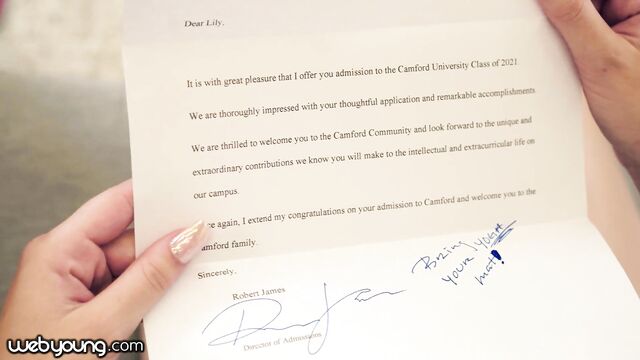 Dear Lily,
It is with great pleasure that I offer you admission to the Camford University Class of 2021
We are thoroughly impressed with your thoughtful application and remarkable accomplishments
We are thrilled to welcome you to the Camford Community and look forward to the unique and
extraordinary contributions we know you will make to the intellectual and extracurricular life on
our campus.
ce again, I extend my congratulations on your admission to Camford and welcome you to the
amford family.
Sincerely,
Robert James
Director of Admissions
Bring your
your
mat!
webyoung.com